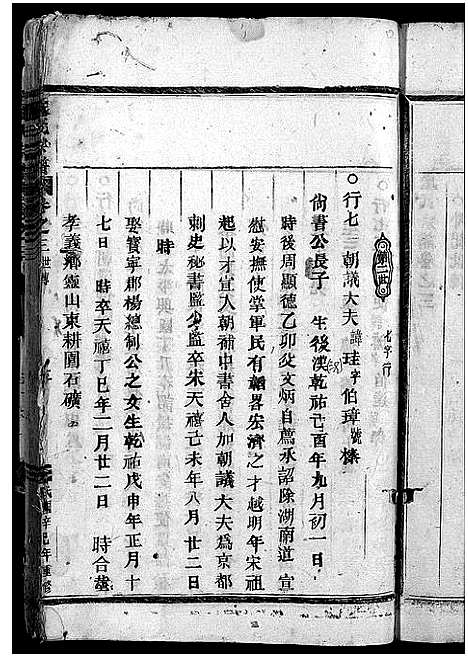 第二世
七字行
○行七三朝議大夫諱珪字伯璋號檪
尙書公長子 生後漢乾祐己酉年九月初一日
時後周顯德乙卯父文炳自薦承詔除湖南道宣
慰安撫使掌軍民有韜畧宏濟之才越明年宋祖
起以才宜入朝補中書舍人加朝議大夫爲京都
刺史秘書監少監卒宋天禧己未年八月廿二日
時
娶寶寧郡楊總制公之女生乾祐戊申年正月十
七日 時卒天禧丁巳年二月廿二日 時合塟
孝義鄉靈山東耕圍石礦
之三世傳
民國辛巳年重修